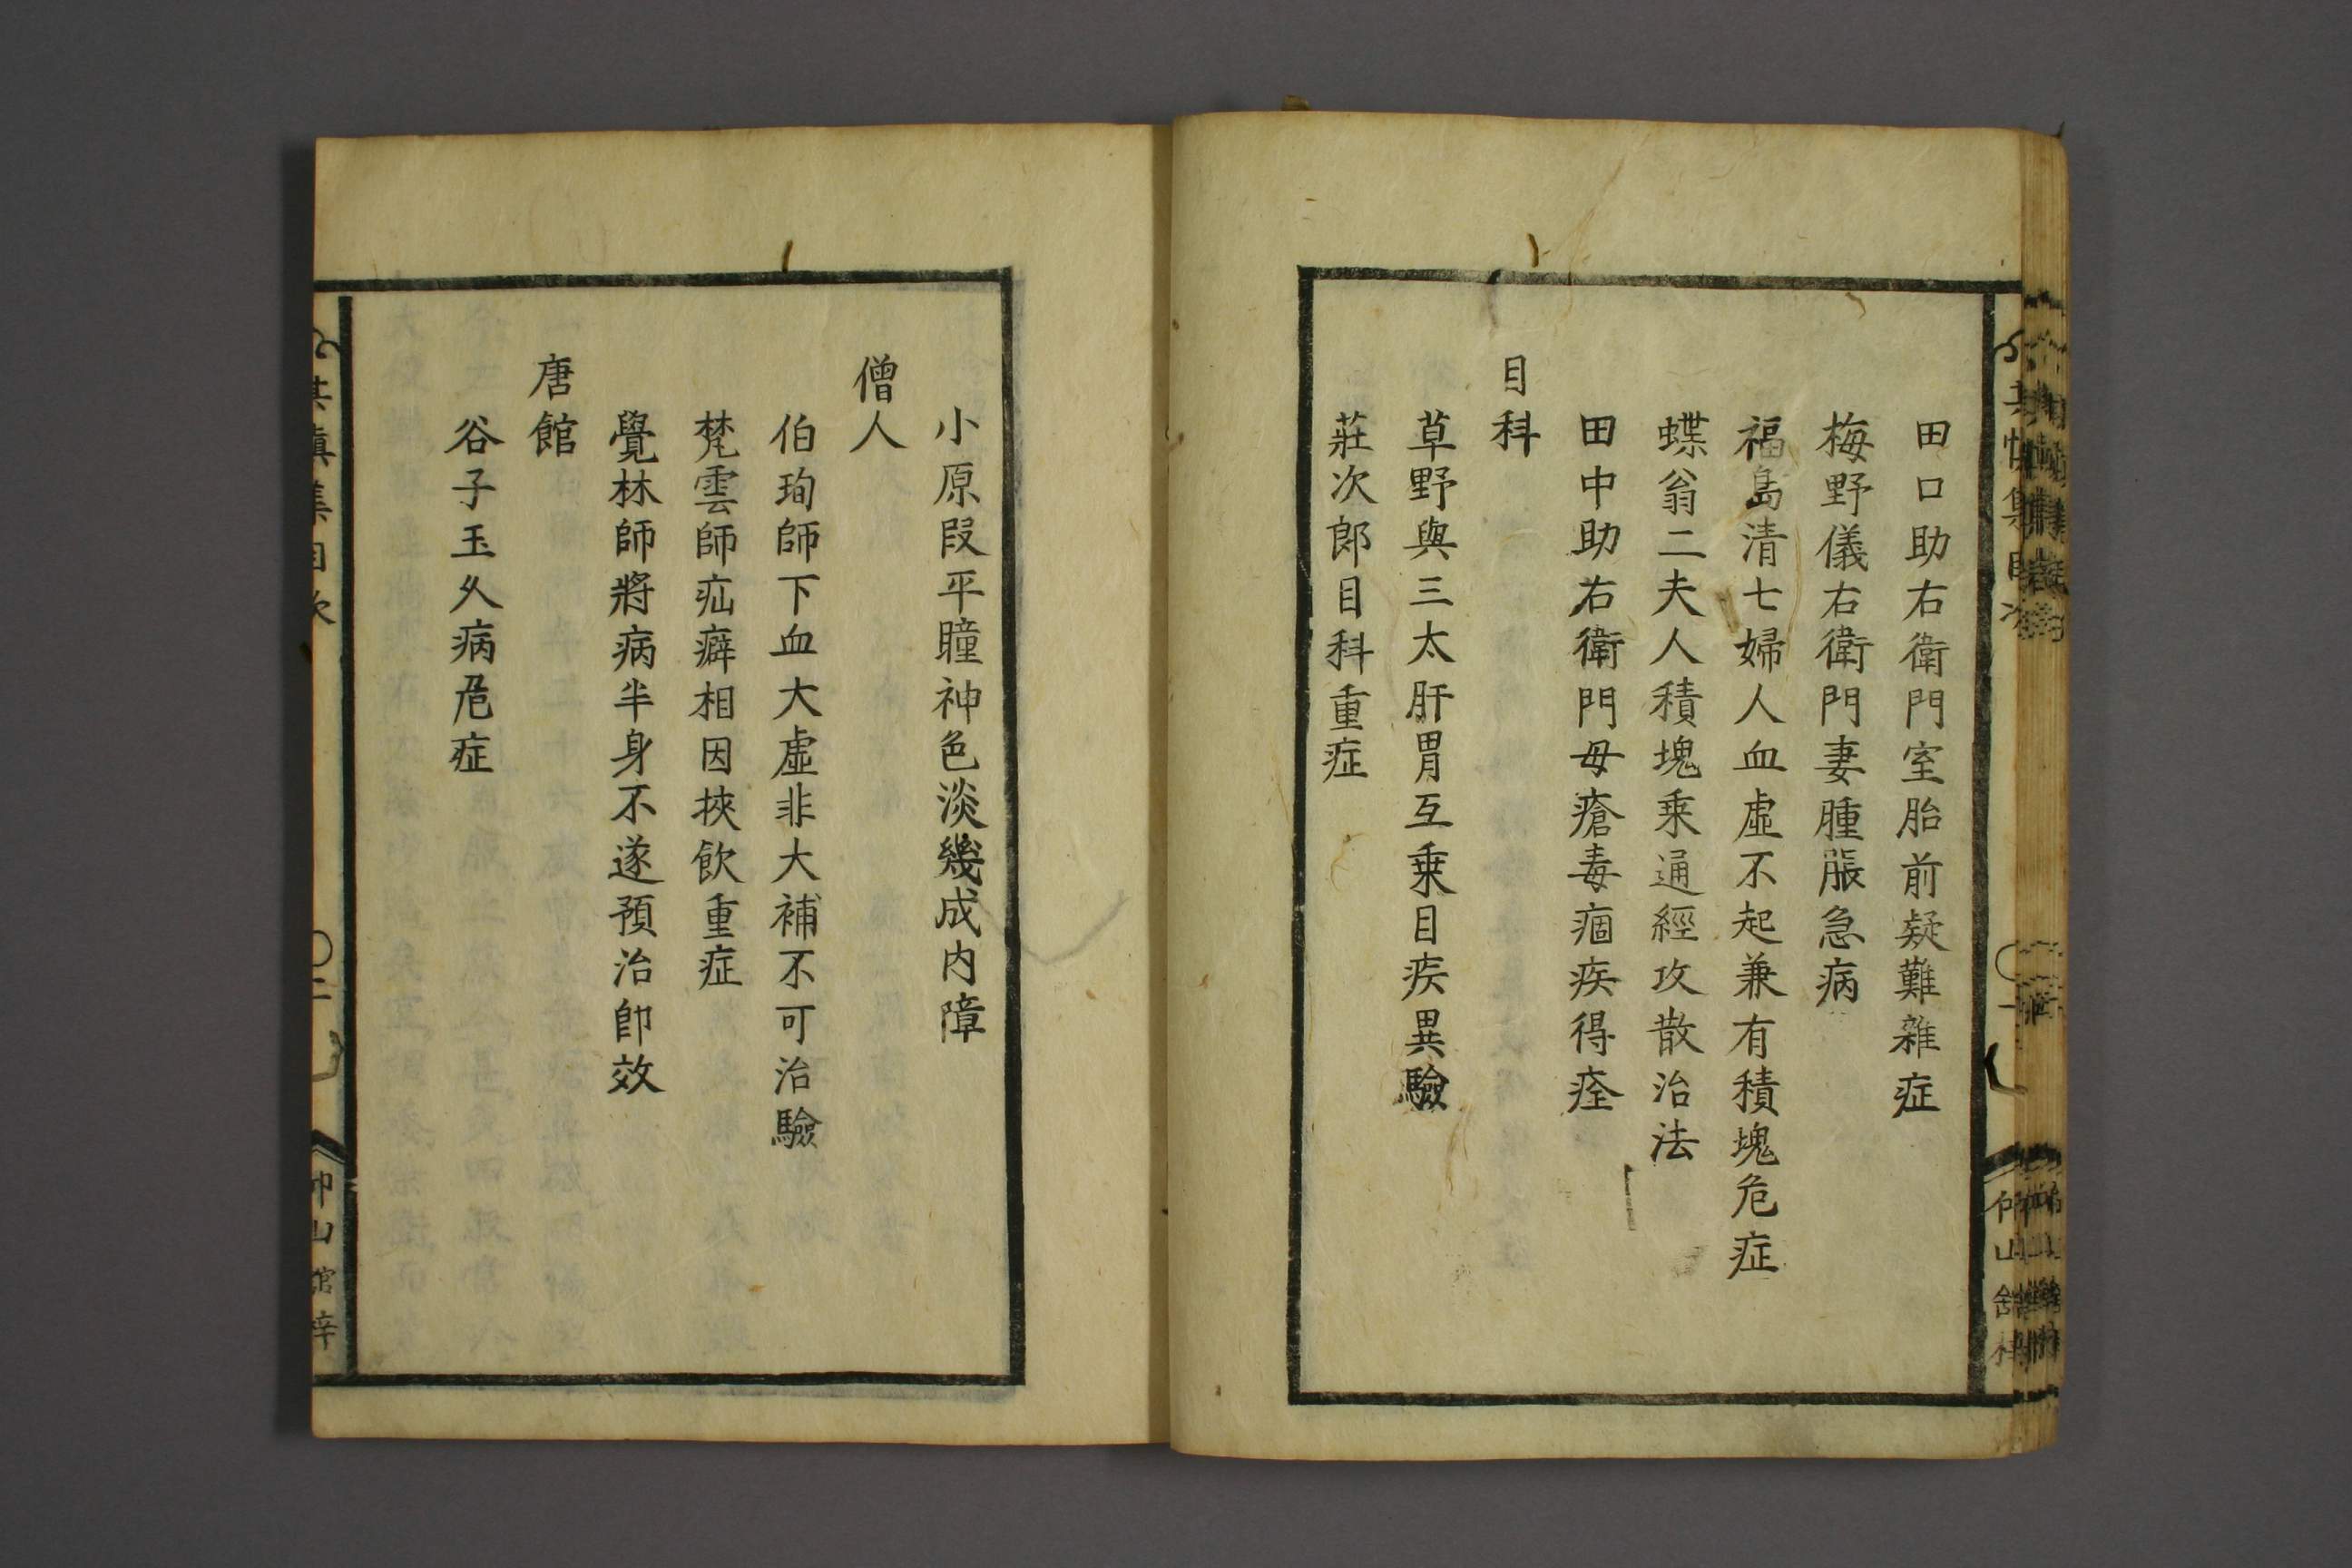 田口助右衛門室胎前疑難雜症
梅野儀右衛門妻腫脹急病
福島清七婦人血虛不起兼有積塊危症
蝶翁二夫人積塊乗通經攻散治法
田中助右衛門母瘡毒痼疾得痊
目科
草野與三太肝胃互乗目疾異驗
莊次郎目科重症
小原叚平瞳神色淡幾成内障
僧人
伯珣師下血大虛非大補不可治驗
梵雲師疝癖相因挾飲重症
覺林師將病半身不遂預治即效
唐館
谷子玉久病危症
集目次
山館梓